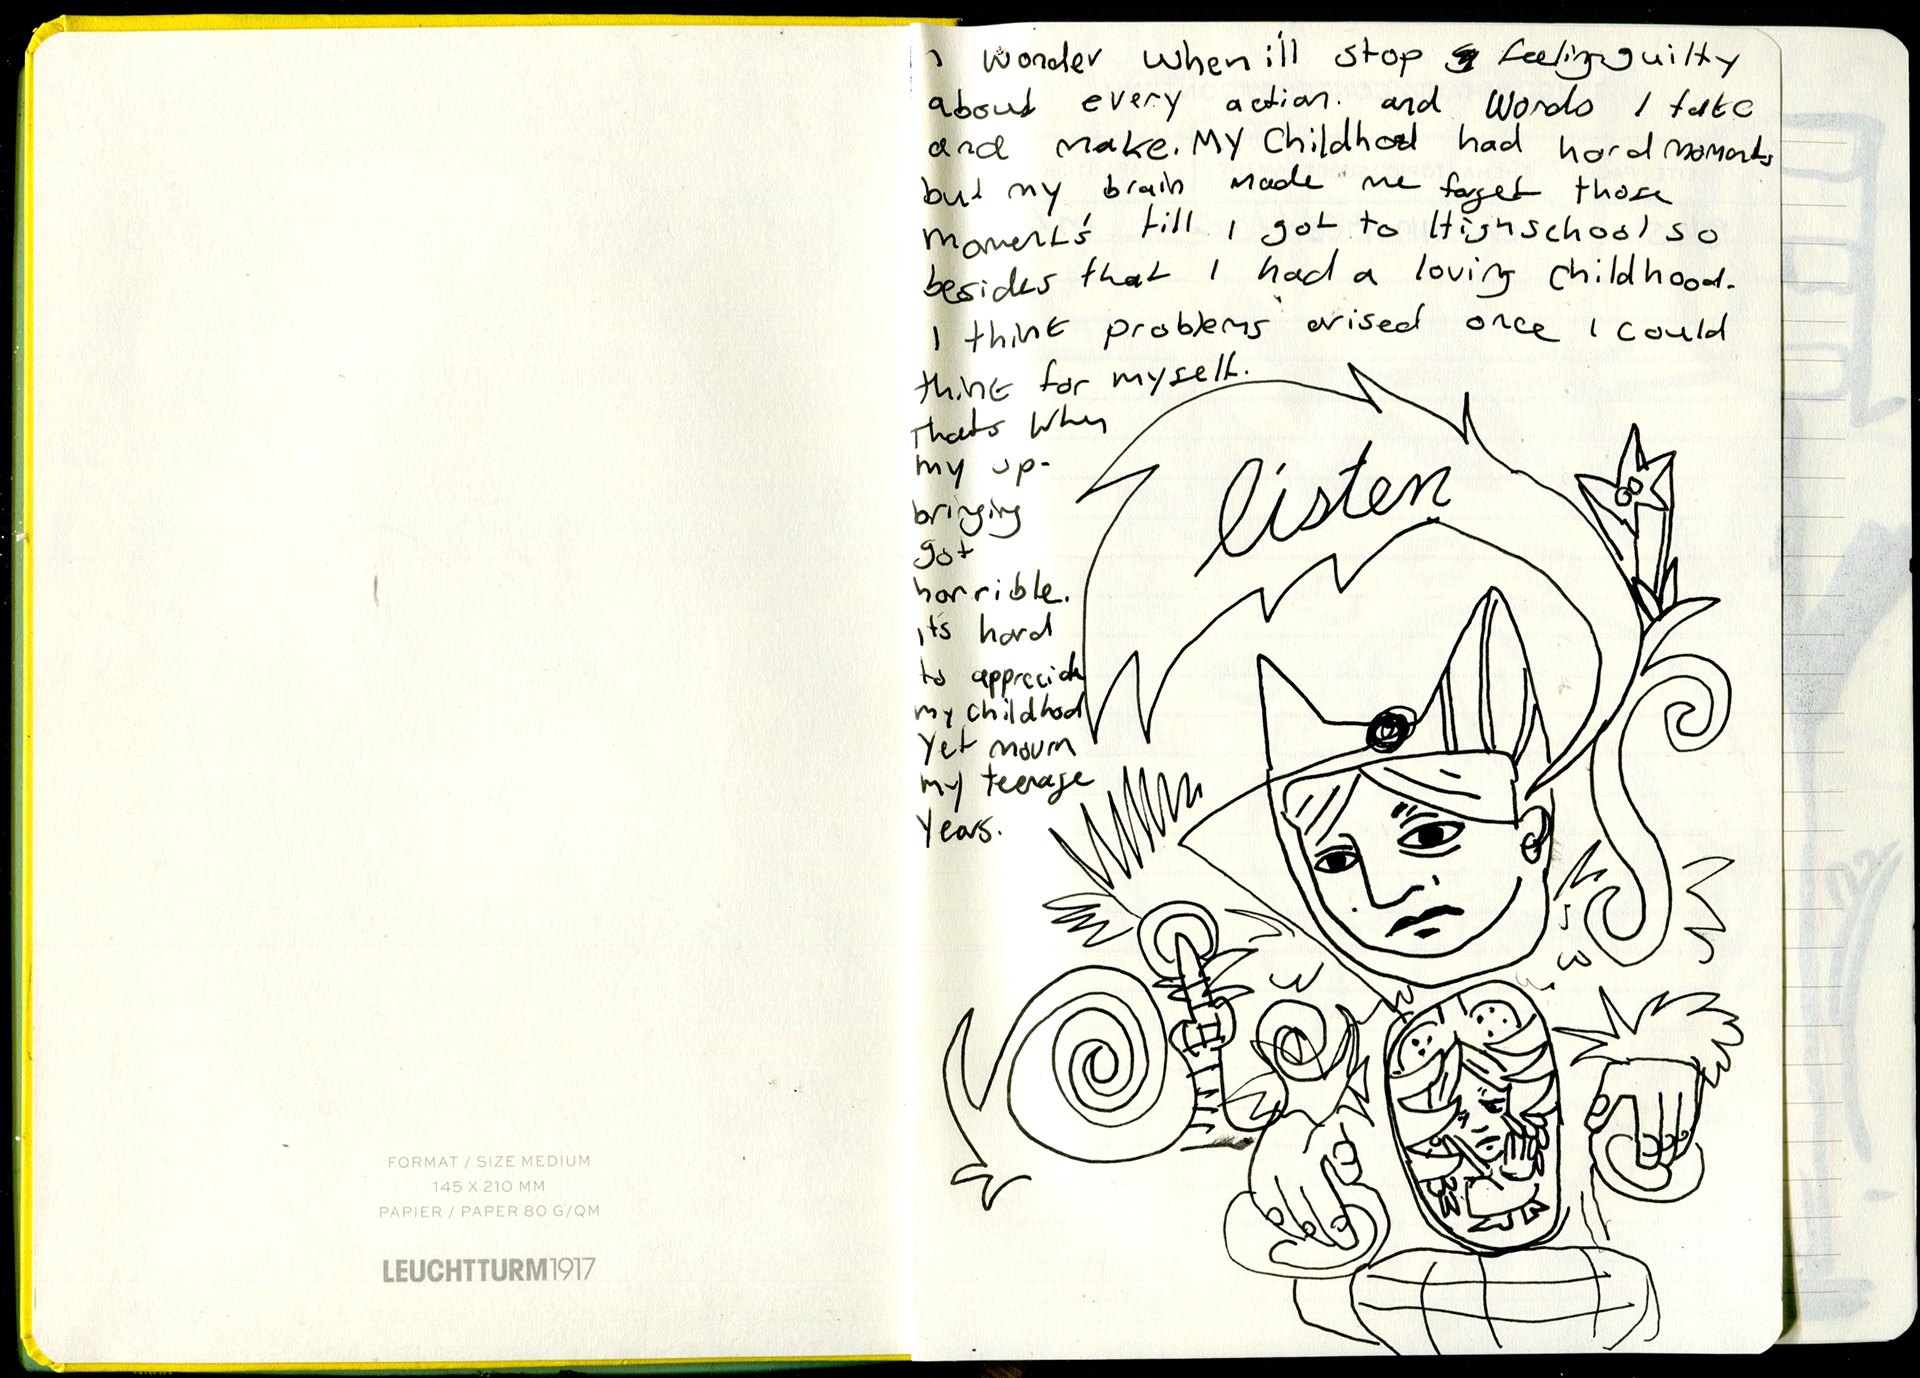 FORMAT / SIZE MEDIUM
145 X 210 MM
PAPIER / PAPER 80 G/QM
LEUCHTTURM1917
I wonder when ill stop feeling guilty
about every action. and words I take
and make. MY Childhood had hard moments
but my brain made me forget those
moments till I got to Highschool so
besides that I had a loving childhood.
I think problems arised once I could
think for myself.
thats when
my up-
bringing
got
horrible.
its hard
to appreciate
my childhood
yet mourn
my teenage
years.
listen